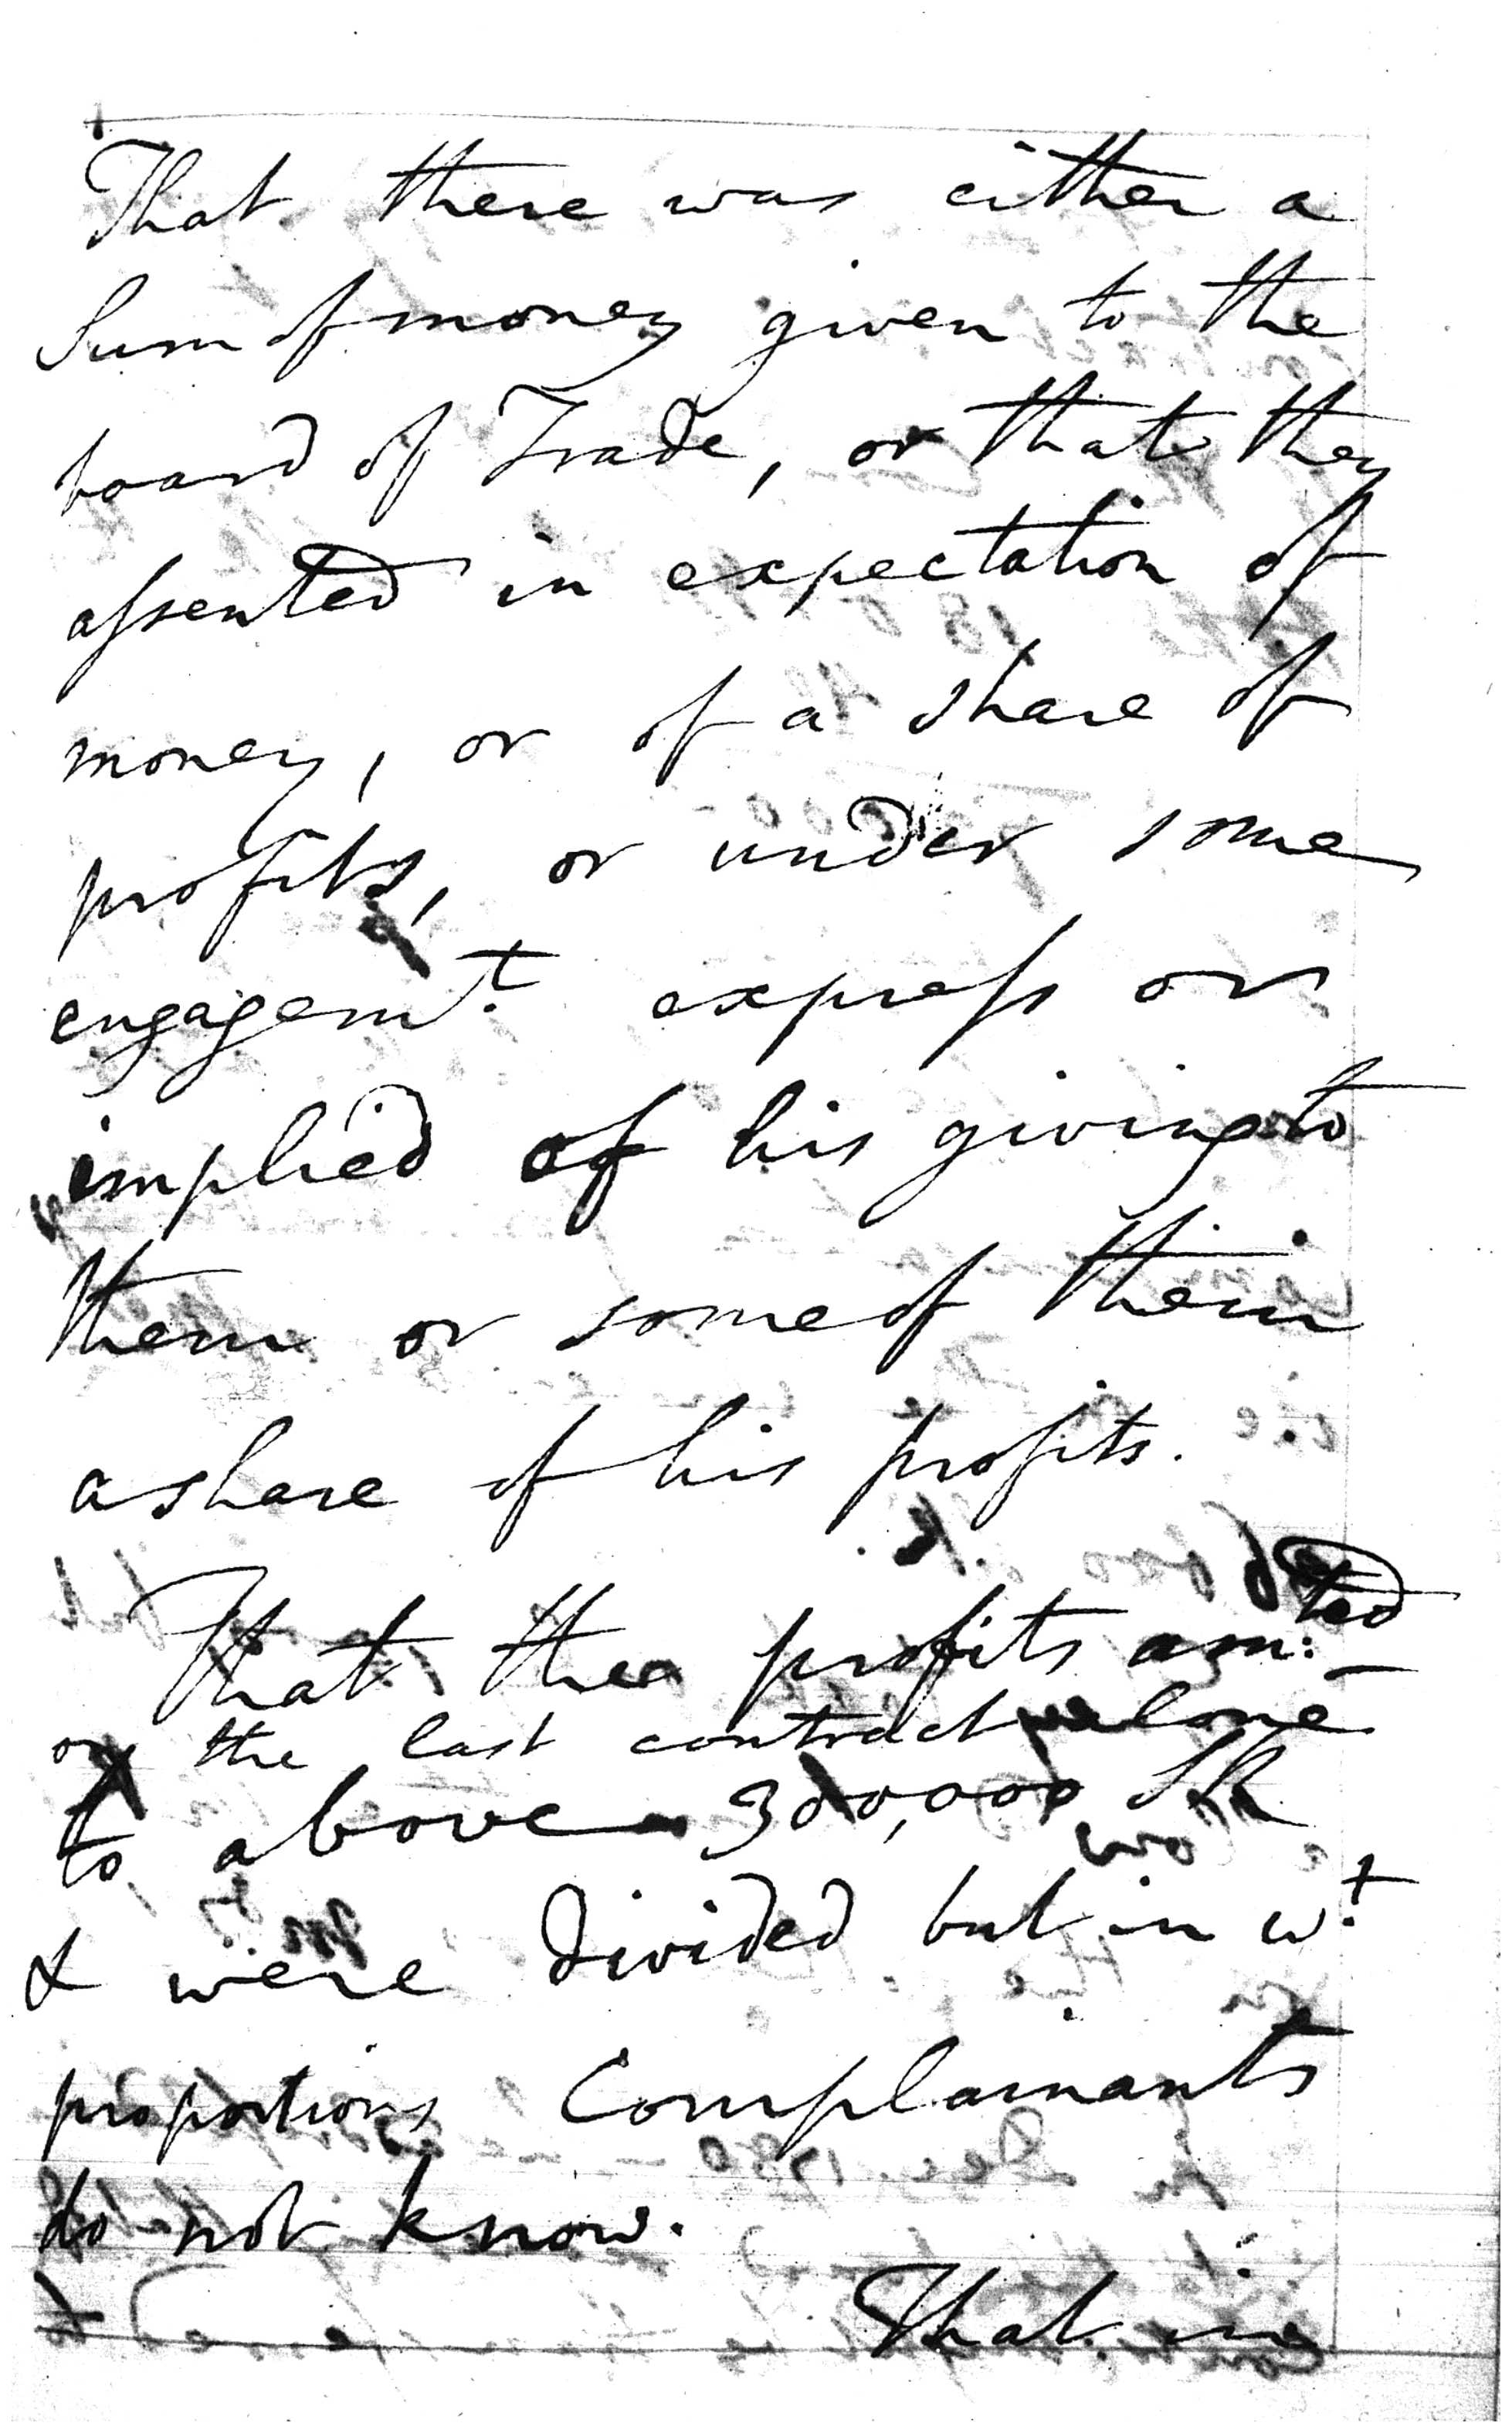 That there was either a
Sum of money given to the
board of Trade, or that they
assented in expectation of
money, or of a share of
profits, or under some
engagemt. express or
implied of his giving to
them or some of them
a share of his profits.
That the profits am:ted
on the last contract alone
to above 300,000 SR
& were divided but in wt.
proportions Complainants
do not know.
That in